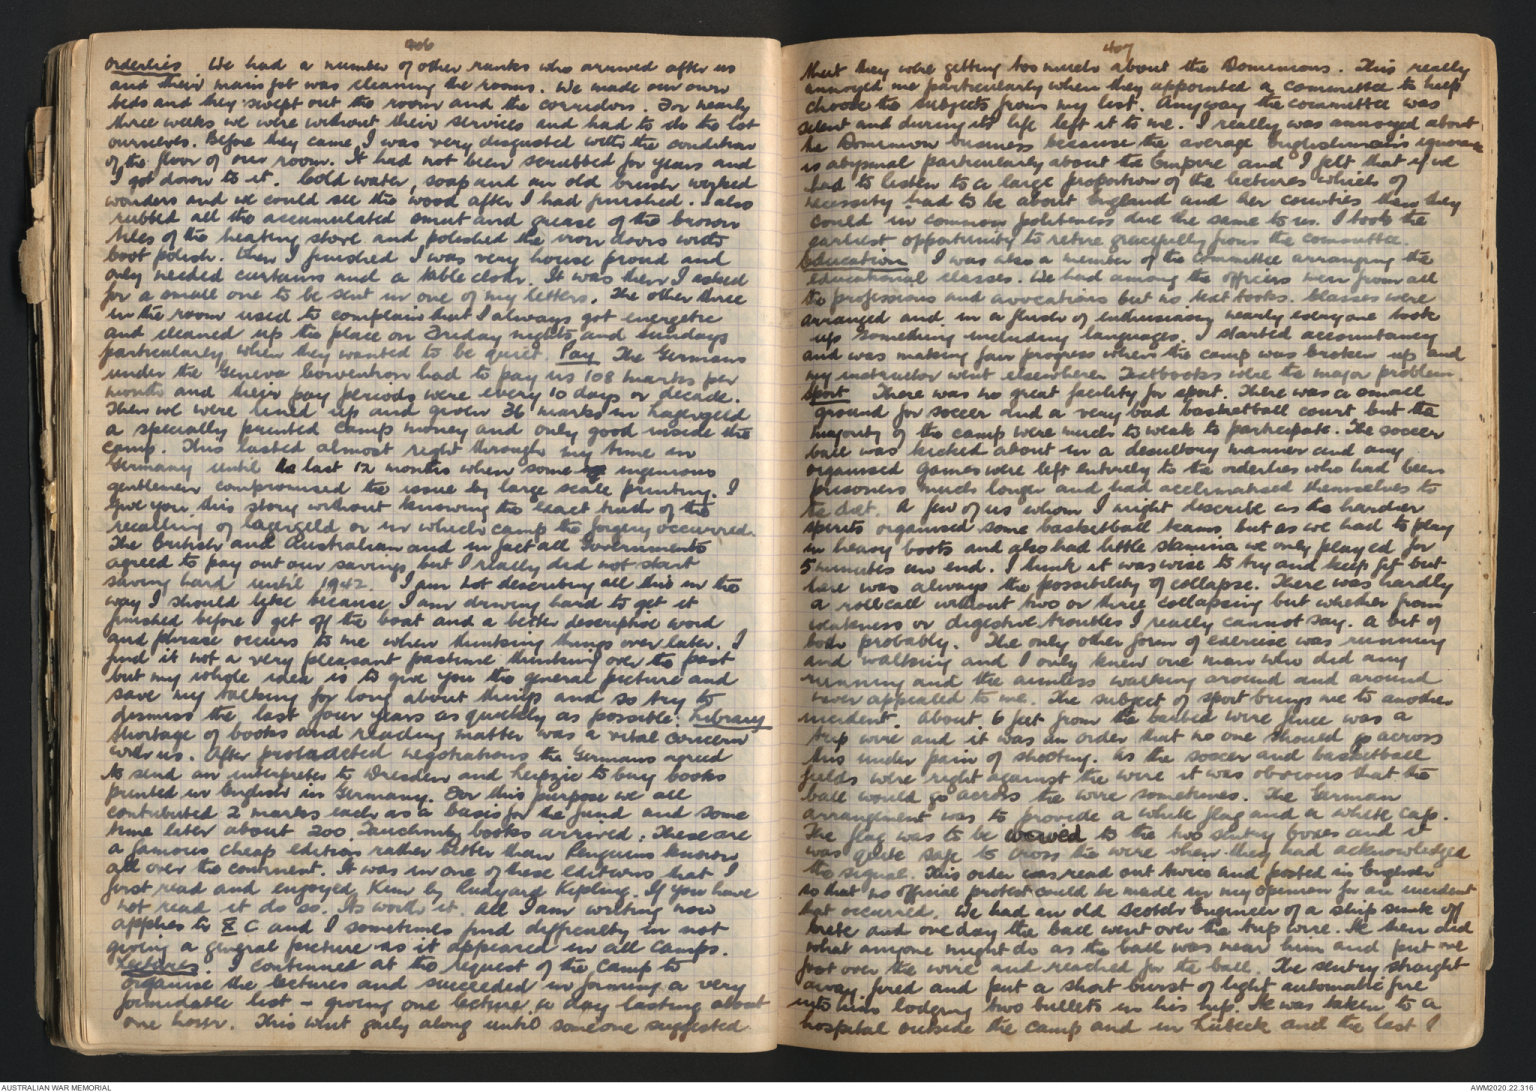 406
Orderlies We had a number of other ranks who arrived after us
and their main job was cleaning the rooms. We made our own
beds and they swept out the room and the corridors. For nearly
three weeks we were without their services and had to do the lot
ourselves. Before they came I was very disgusted with the condition
of the floor of our room. It had not been scrubbed for years and
I got down to it. Cold water, soap and an old brush worked
wonders and we could see the wood after I had finished. I also
rubbed all the accumulated smut and grease of the brown
tiles of the heating stove and polished the iron doors with
boot polish. When I finished I was very house proud and
only needed curtains and a table cloth. It was then I asked
for a small one to be sent in one of my letters. The other three
in the room used to complain that I always got energetic
and cleaned up the place on Friday nights and Sundays
particularly when they wanted to be quiet. Pay The Germans
under the Geneva Convention had to pay us 108 marks per
month and their pay periods were every 10 days or decade.
Then we were lined up and given 36 marks in lagergeld
a specially printed camp money and only good inside the
camp. This lasted almost right through my time in
Germany until the last 12 months when some ingenious
gentlemen compromised the issue by large scale printing. I
give you this story without knowing the exact truth of the
recalling of lagergeld or in which camp the forgery occurred.
The British and Australian and in fact all Governments
agreed to pay out our savings but I really did not start
saving hard until 1942. I am not describing all this in the
way I should like because I am driving hard to get it
finished before I get off the boat and a better descriptive word
and phrase occurs to me when thinking things over later. I
find it not a very pleasant pastime thinking over the past
but my whole idea is to give you the general picture and
save my talking for long about things and so try to
dismiss the last four years as quickly as possible. Library
Shortage of books and reading matter was a vital concern
with us. After protracted negotiations the Germans agreed
to send an interpreter to Dresden and Leipzig to buy books
printed in English in Germany. For this purpose we all
contributed 2 marks each as a basis for the fund and some
time later about 200 Tauchnitz books arrived. These are
a famous cheap edition rather better than Penguins known
all over the continent. It was in one of these editions that I
first read and enjoyed Kim by Rudyard Kipling. If you have
not read it do so. Its worth it. All I am writing now
applies to X C and I sometimes find difficulty in not
giving a general picture as it appeared in all camps.
Lectures. I continued at the request of the camp to
organise the lectures and succeeded in forming a very
formidable list – giving one lecture a day lasting about
one hour. This went gaily along until someone suggested
407
that they were getting too much about the Dominions. This really
annoyed me particularly when they appointed a committee to help
choose the subjects from my list. Anyway the committee was
silent and during its life left it to me. I really was annoyed about
the Dominion business because the average Englishman's ignorance
is abysmal particularly about the Empire and I felt that if we
had to listen to a large proportion of the lectures which of
necessity had to be about England and her counties then they
could in common politeness due the same to us. I took the
earliest opportunity to retire gracefully from the committee.
Education I was also a member of the committee arranging the
educational classes. We had among the officers men from all
the professions and avocations but no text books. Classes were
arranged and in a flush of enthusiasm nearly everyone took
up something including languages. I started accountancy
and was making fair progress when the camp was broken up and
my instructor went elsewhere. Textbooks were the major problem.
Sport There was no great facility for sport. There was a small
ground for soccer and a very bad basketball court but the
majority of the camp were much to weak to participate. The soccer
ball was kicked about in a desultory manner and any
organised games were left entirely to the orderlies who had been
prisoners much longer and had acclimatised themselves to
the diet. A few of us whom I might describe as the hardier
spirits organised some basketball teams but as we had to play
in heavy boots and also had little stamina we only played for
5 minutes an end. I think it was wise to try and keep fit but
there was always the possibility of collapse. There was hardly
a rollcall without two or three collapsing but whether from
weakness or digestive troubles I really cannot say. A bit of
both probably. The only other form of exercise was running
and walking and I only knew one man who did any
running and the aimless walking around and around
never appealed to me. The subject of sport brings me to another
incident. About 6 feet from the barbed wire fence was a
trip wire and it was an order that no one should go across
this under pain of shooting. As the soccer and basketball
fields were right against the wire it was obvious that the
ball would go across the wire sometimes. The German
arrangement was to provide a white flag and a white cap.
The flag was to be waved to the two sentry boxes and it
was quite safe to cross the wire when they had acknowledged
the signal. This order was read out twice and posted in English
so that no official protest could be made in my opinion for an incident
that occurred. We had an old Scotch Engineer of a ship sunk off
Crete and one day the ball went over the trip wire. He then did
what anyone might do as the ball was near him and put one
foot over the wire and reached for the ball. The sentry straight
away fired and put a short burst of light automatic fire
into him lodging two bullets in his hip. He was taken to a
hospital outside the camp and in Lübeck and the last I
AUSTRALIAN WAR MEMORIAL
AWM2020.22.316